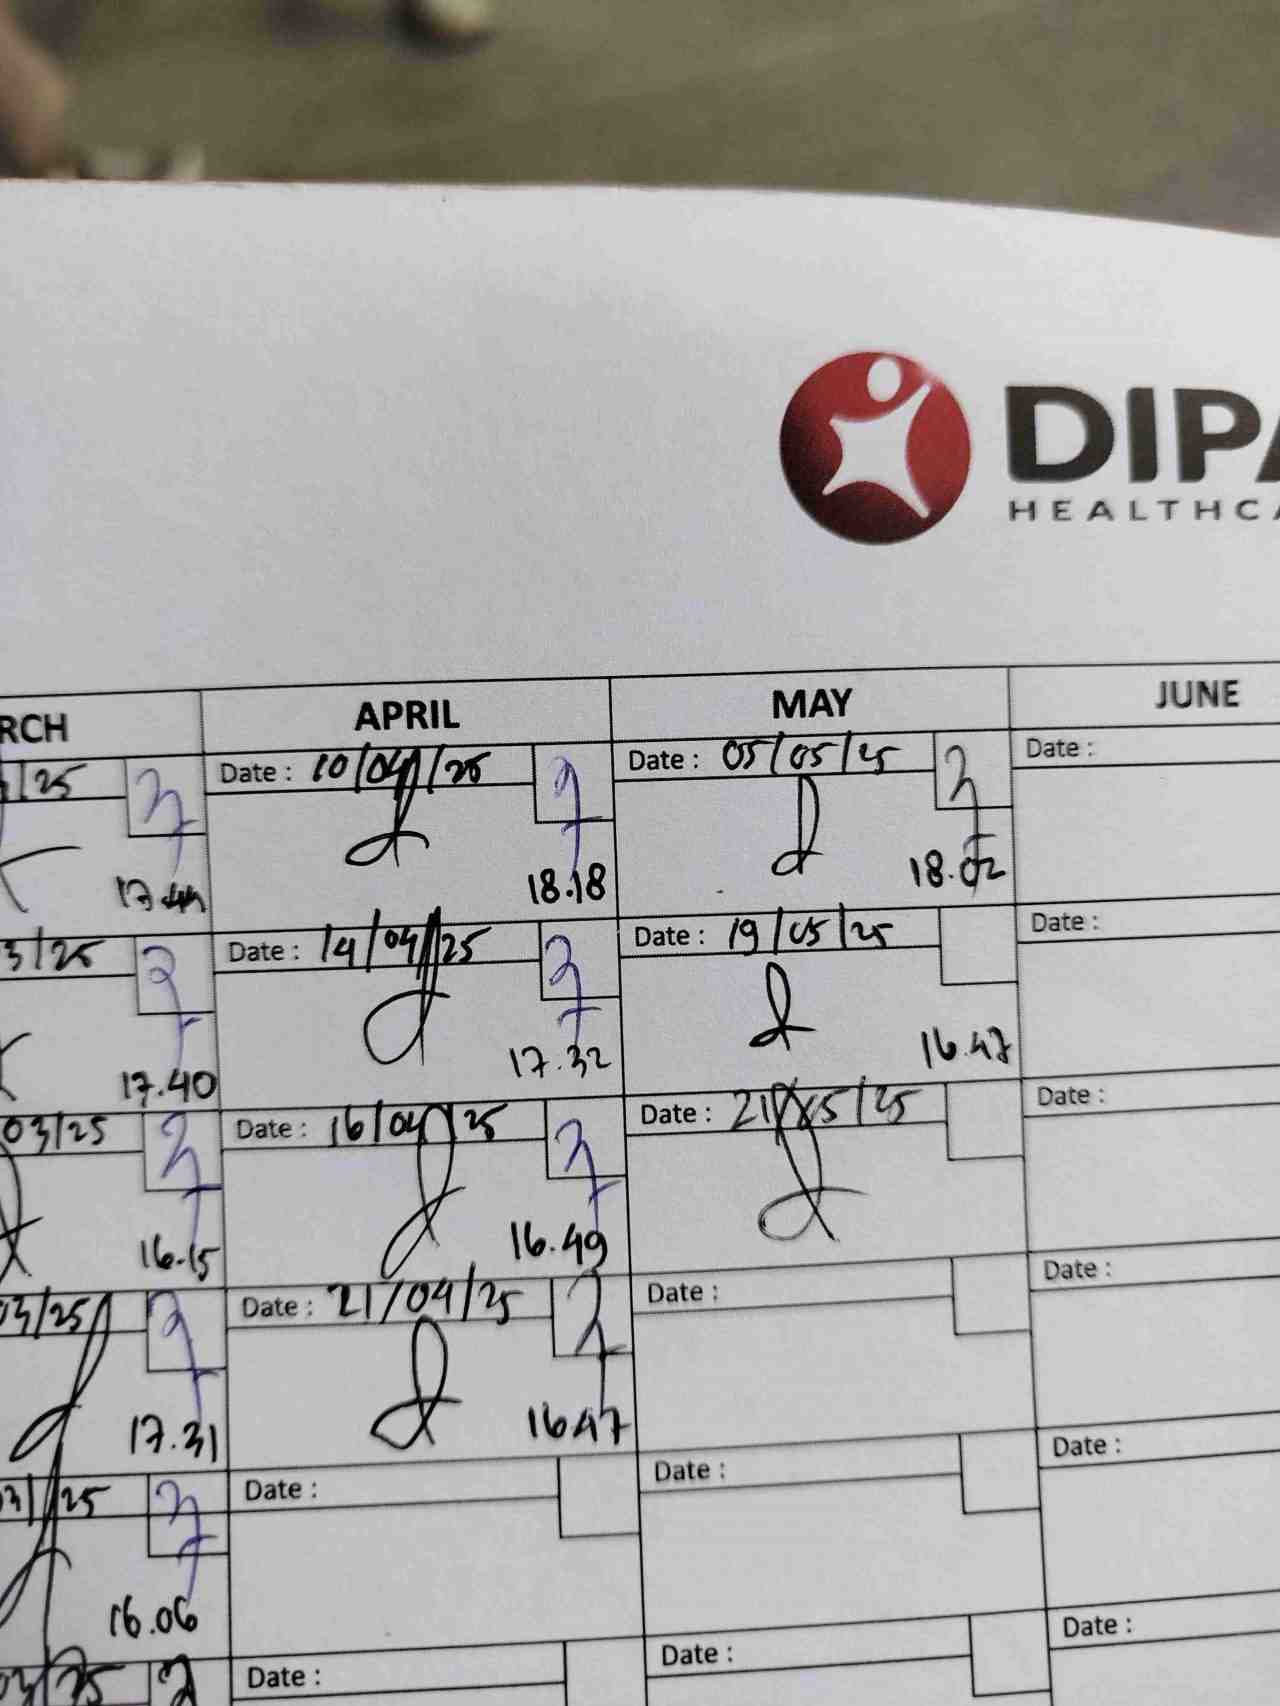 DIPA
HEALTHCA
RCH APRIL MAY JUNE
/25 Date : 10/04/25 Date : 05/05/25 Date :
17.44 18.18 18.02
3/25 Date : 14/04/25 Date : 19/05/25 Date :
17.40 17.32 16.47
03/25 Date : 16/04/25 Date : 21/05/25 Date :
16.15 16.49
03/25 Date : 21/04/25 Date : Date :
17.31 16.47
03/25 Date : Date : Date :
16.06
03/25 Date : Date : Date :